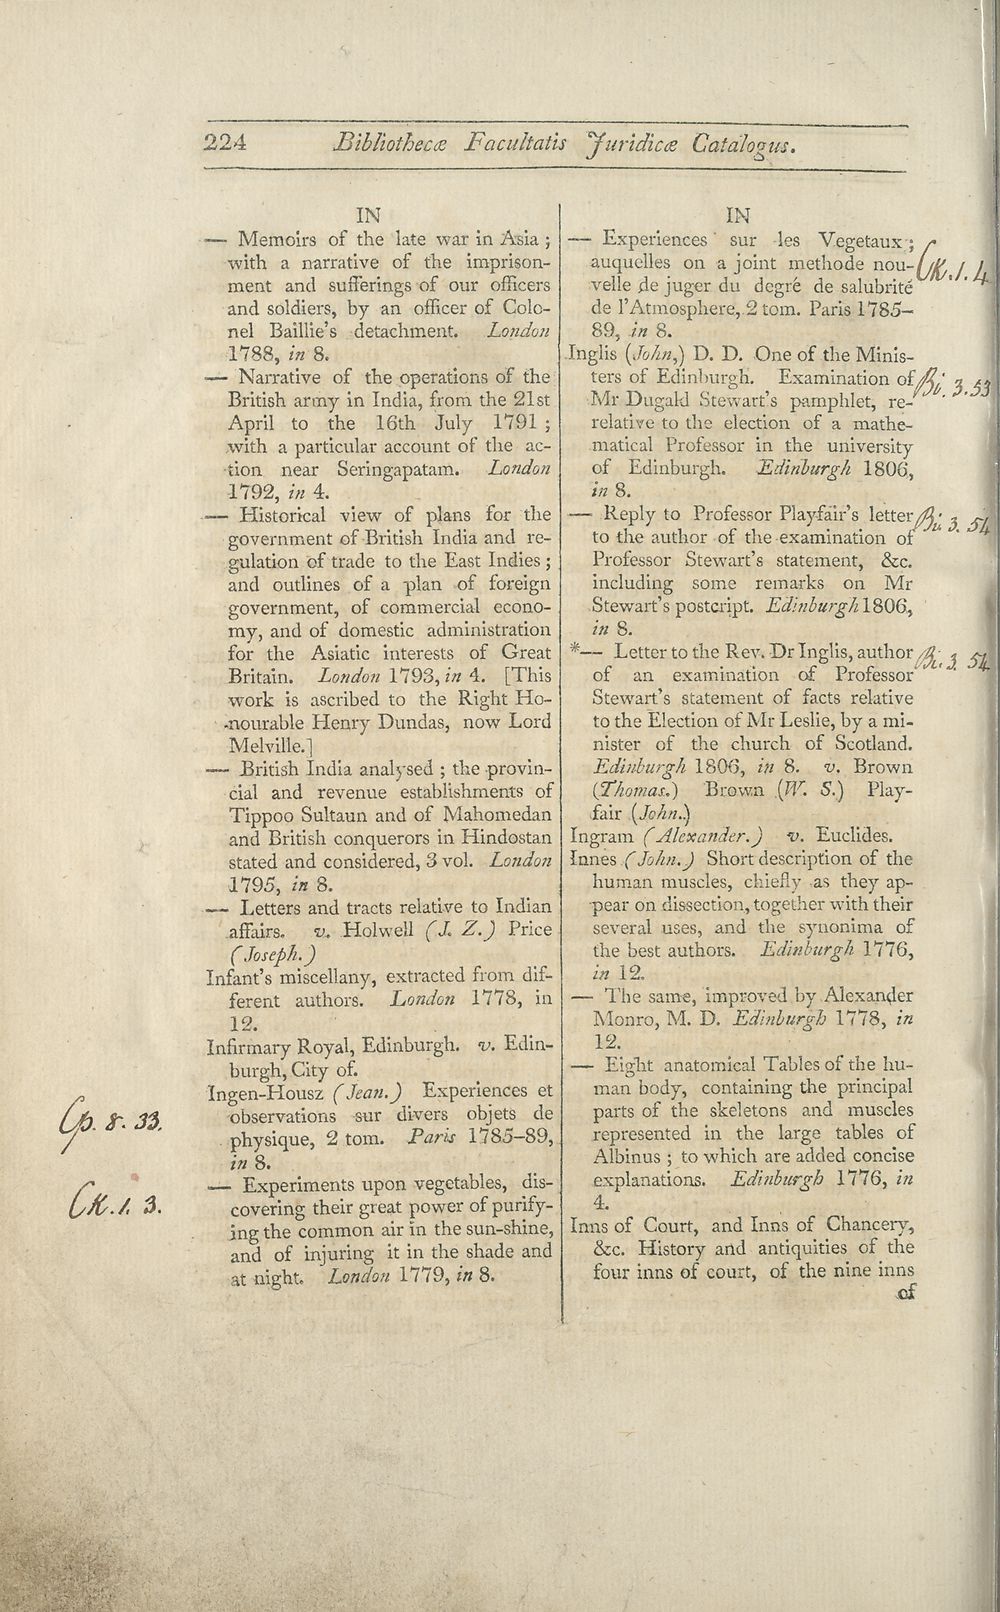 224 Bibliothecæ Facultatis Juridicæ Catalogus.
IN
— Memoirs of the late war in Asia ;
with a narrative of the imprison-
ment and sufferings of our officers
and soldiers, by an officer of Colo-
nel Baillie's detachment. London
1788, in 8.
— Narrative of the operations of the
British army in India, from the 21st
April to the 16th July 1791 ;
with a particular account of the ac-
tion near Seringapatam. London
1792, in 4.
— Historical view of plans for the
government of British India and re-
gulation of trade to the East Indies ;
and outlines of a plan of foreign
government, of commercial econo-
my, and of domestic administration
for the Asiatic interests of Great
Britain. London 1793, in 4. [This
work is ascribed to the Right Ho-
nourable Henry Dundas, now Lord
Melville.]
— British India analysed ; the provin-
cial and revenue establishments of
Tippoo Sultaun and of Mahomedan
and British conquerors in Hindostan
stated and considered, 3 vol. London
1795, in 8.
— Letters and tracts relative to Indian
affairs. v. Holwell (J. Z.) Price
(Joseph.)
Infant's miscellany, extracted from dif-
ferent authors. London 1778, in
12.
Infirmary Royal, Edinburgh. v. Edin-
burgh, City of.
Ingen-Housz (Jean.) Experiences et
observations sur divers objets de
physique, 2 tom. Paris 1785–89,
in 8.
Cp. 8. 33.
— Experiments upon vegetables, dis-
covering their great power of purify-
ing the common air in the sun-shine,
and of injuring it in the shade and
at night. London 1779, in 8.
CK. 1. 3.
IN
— Experiences sur les Vegetaux ;
auquelles on a joint methode nou-
velle de juger du degré de salubrité
de l'Atmosphere, 2 tom. Paris 1785–
89, in 8.
CK. 1. 4
Inglis (John,) D. D. One of the Minis-
ters of Edinburgh. Examination of
Mr Dugald Stewart's pamphlet, re-
relative to the election of a mathe-
matical Professor in the university
of Edinburgh. Edinburgh 1806,
in 8.
Bi. 3. 53
— Reply to Professor Playfair's letter
to the author of the examination of
Professor Stewart's statement, &c.
including some remarks on Mr
Stewart's postcript. Edinburgh 1806,
in 8.
Bi. 3. 54
*— Letter to the Rev. Dr Inglis, author
of an examination of Professor
Stewart's statement of facts relative
to the Election of Mr Leslie, by a mi-
nister of the church of Scotland.
Edinburgh 1806, in 8. v. Brown
(Thomas.) Brown (W. S.) Play-
fair (John.)
Bi. 3. 54
Ingram (Alexander.) v. Euclides.
Innes (John.) Short description of the
human muscles, chiefly as they ap-
pear on dissection, together with their
several uses, and the synonima of
the best authors. Edinburgh 1776,
in 12.
— The same, improved by Alexander
Monro, M. D. Edinburgh 1778, in
12.
— Eight anatomical Tables of the hu-
man body, containing the principal
parts of the skeletons and muscles
represented in the large tables of
Albinus ; to which are added concise
explanations. Edinburgh 1776, in
4.
Inns of Court, and Inns of Chancery,
&c. History and antiquities of the
four inns of court, of the nine inns
of